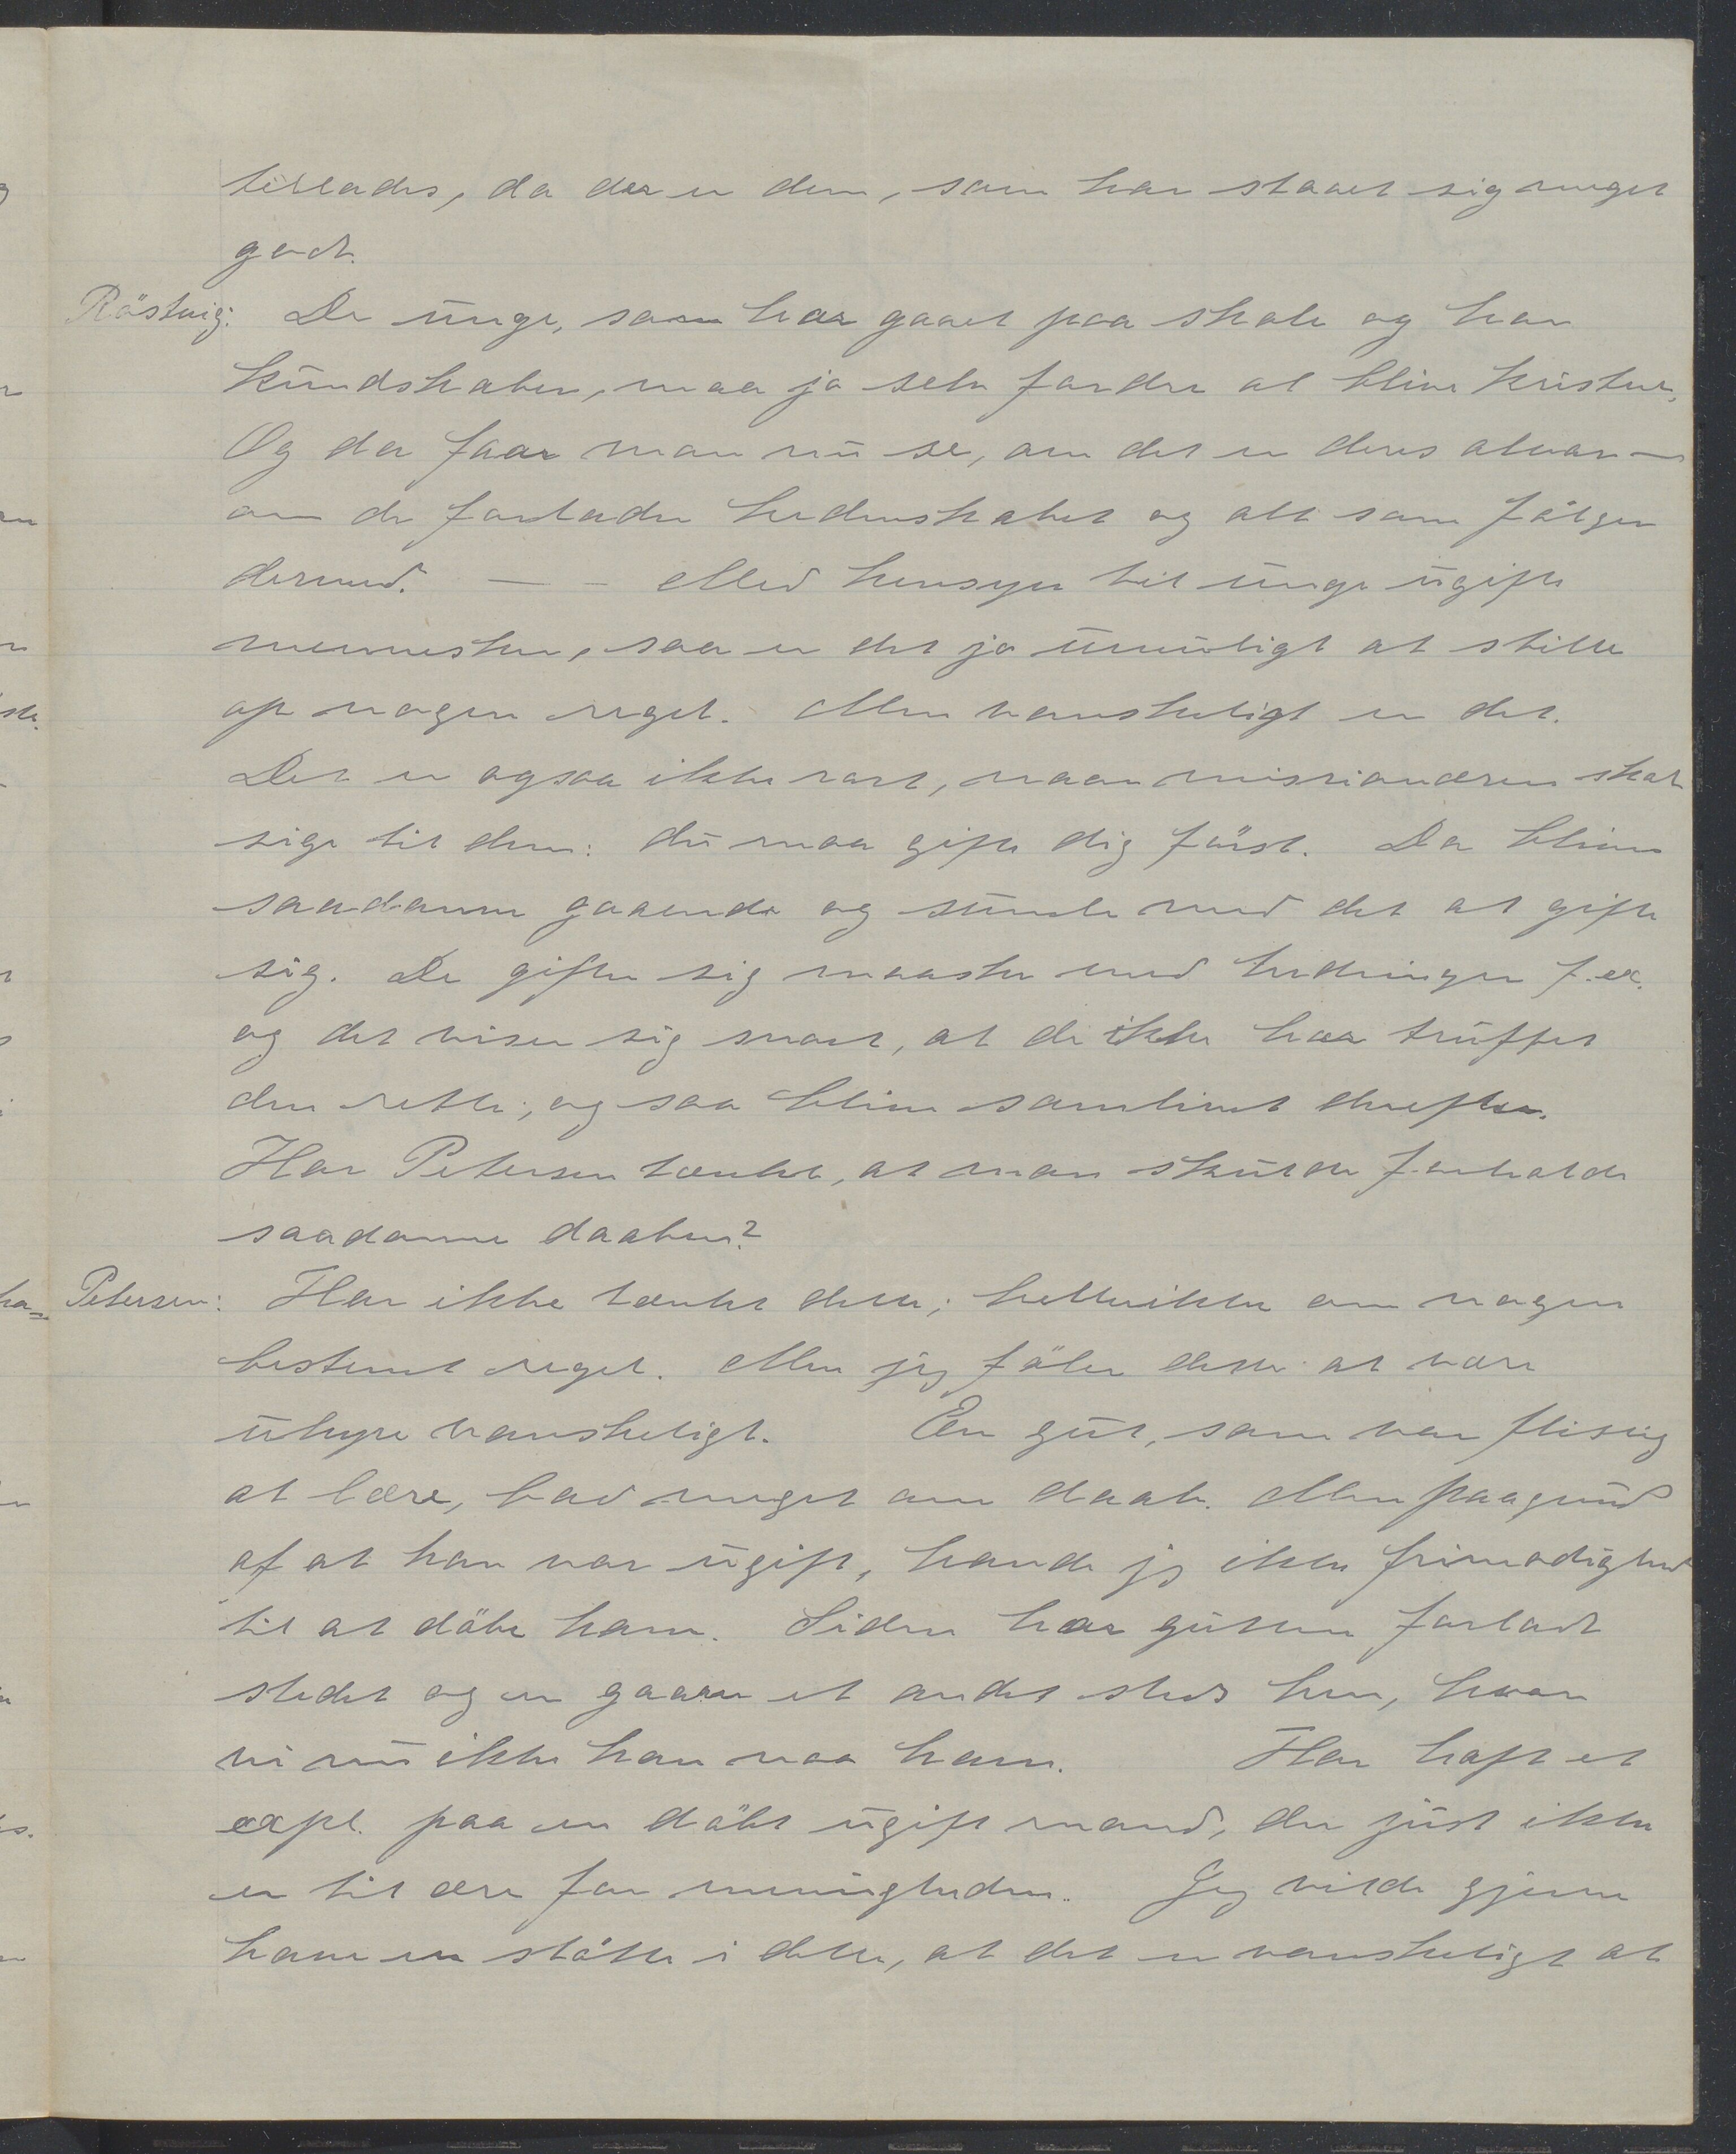 tillades, da der er dem, som har staaet sig meget
godt.
Röstvig: De unge, som har gaaet paa skole og har
kundskaber, maa jo selv fordre at blive kristne.
Og da faar man nu se, om det er deres alvor —
om de forlader hedenskabet og alt som fölger
dermed. — – Med hensyn til unge ugifte
mennesker, saa er det jo umuligt at stille
op nogen regel. Men vanskeligt er det.
Det er ogsaa ikke rart, naar missionæren skal
sige til dem: du maa gifte dig först. Da bliver
saadanne gaaende og stunde med det at gifte
sig. De gifter sig maaske med hedninger f.ex.
og det viser sig snart, at de ikke har truffet
den rette; og saa bliver samlivet derefter.
Har Petersen tænkt, at man skulde forholde
saadanne daaben?
Petersen: Har ikke tænkt dette; hellerikke om nogen
bestemt regel. Men jeg föler dette at være
uhyre vanskeligt. En gut, som var flittig
at lære, bad meget om daab. Men paagrund
af at han var ugift, havde jeg ikke frimodighed
til at döbe ham. Siden har gutten forladt
stedet og er gaaen et andet steds hen, hvor
vi nu ikke kan naa ham. Har haft et
expl. paa en döbt ugift mand, der just ikke
er til ære for menigheden. Jeg vilde gjerne
have en stötte i dette, at det er vanskeligt at